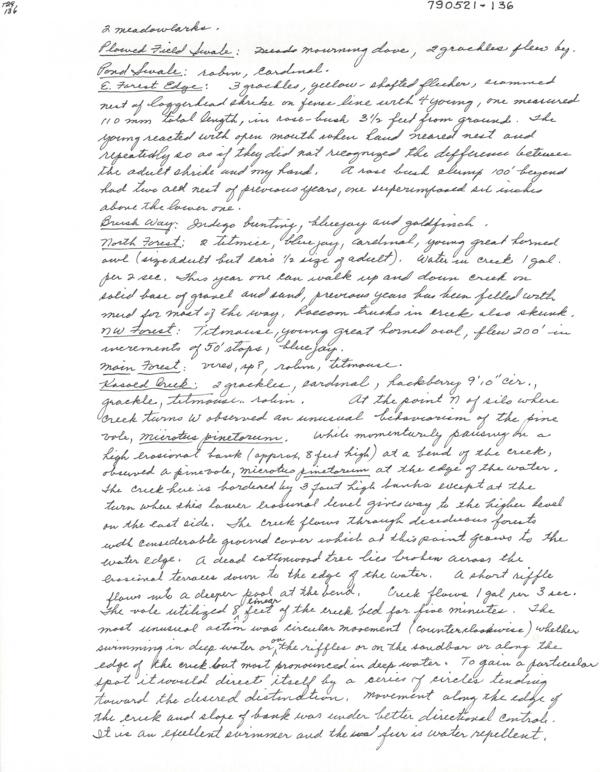 790521-136
136
2 meadowlarks.
Plowed Field Swale: mourning dove, 2 grackles flew by.
Pond Swale: robin, cardinal.
E. Forest Edge: 3 grackles, yellow-shafted flicker, examined
nest of loggerhead shrike on fence line with 4 young, one measured
110 mm total length, in rose-bush 3 1/2 feet from ground. The
young reacted with open mouth when hand neared nest and
repeatedly so as if they did not recognized the difference between
the adult shrike and my hand. A rose bush clump 100' beyond
had two old nest of previous years, one superimposed six inches
above the lower one.
Brush Way: Indigo bunting, bluejay and goldfinch.
North Forest: 2 titmice, bluejay, cardinal, young great horned
owl (size adult but ears 1/2 size of adult). Water in creek 1 gal.
per 2 sec. This year one can walk up and down creek on
solid base of gravel and sand, previous years has been filled with
mud for most of the way. Raccoon tracks in creek also skunk.
NW Forest: Titmouse, young great horned owl, flew 200' in
increments of 50' stops, bluejay.
Main Forest: vireo, sp?, robin, titmouse.
Creek: 2 grackles, cardinal, hackberry 9'10" cir.,
grackle, titmouse, robin. At the point N of silo where
creek turns W observed an unusual behaviorism of the pine
vole, Microtus pinetorum. While momentarily pausing on a
high erosional bank (approx. 8 feet high) at a bend of the creek,
observed a pine vole, Microtus pinetorum at the edge of the water.
The creek here is bordered by 3 foot high banks except at the
turn where this lower erosional level gives way to the higher level
on the east side. The creek flows through deciduous forests
with considerable ground cover which at this point grows to the
water edge. A dead cottonwood tree lies broken across the
erosional terraces down to the edge of the water. A short riffle
flows into a deeper pool at the bend. Creek flows 1 gal per 3 sec.
The vole utilized 8 linear feet of the creek bed for five minutes. The
most unusual action was circular movement (counterclockwise) whether
swimming in deep water or on the riffles or on the sandbar or along the
edge of the creek but most pronounced in deep water. To gain a particular
spot it would direct itself by a series of circles tending
toward the desired distination. Movement along the edge of
the creek and slope of bank was under better directional control.
It is an excellent swimmer and the fur is water repellent.